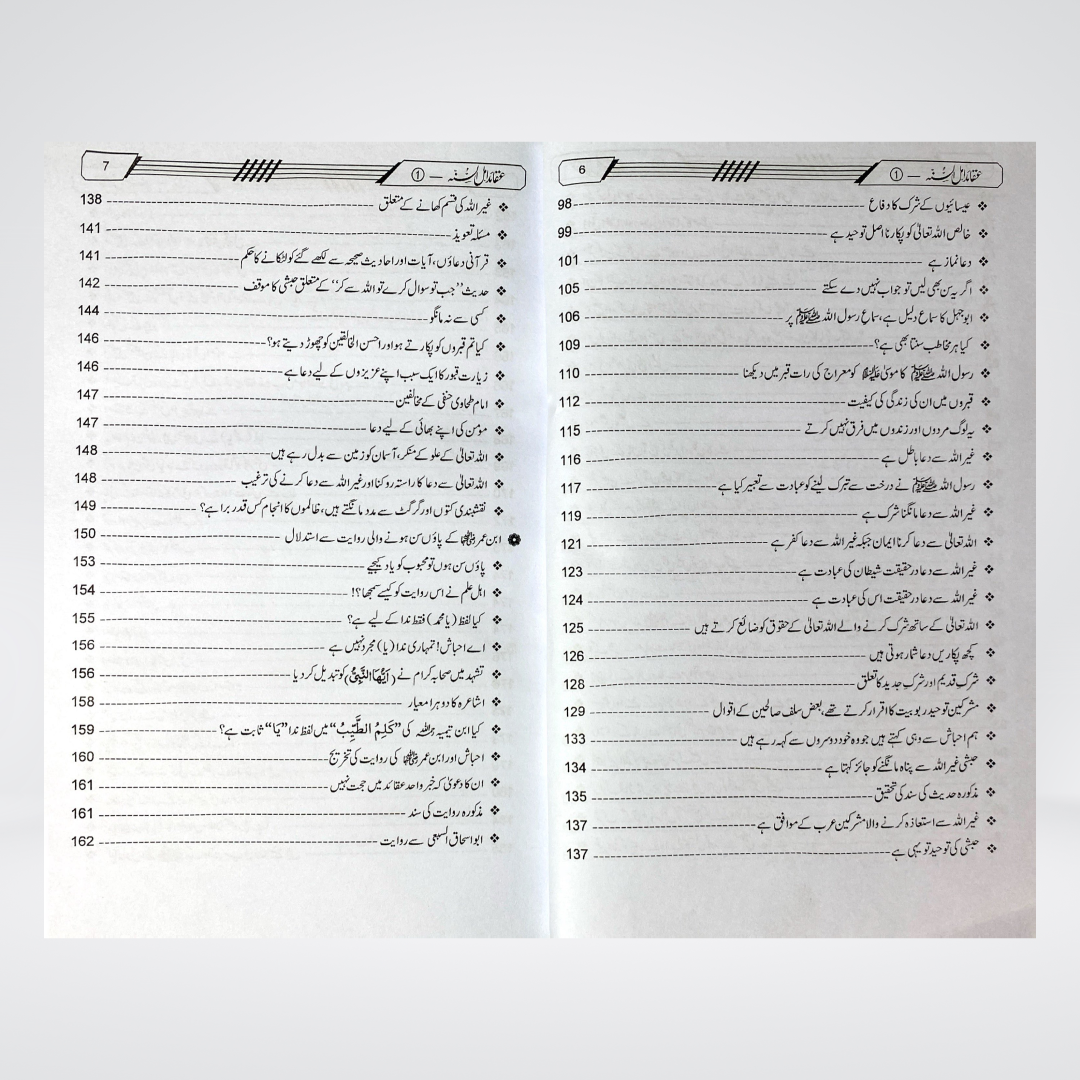 عقائد اہل السنہ — ① 6
❖ عیسائیوں کے شرک کا دفاع 98
❖ خالص اللہ تعالیٰ کو پکارنا اصل توحید ہے 99
❖ دعا نماز ہے 101
❖ اگر یہ سن بھی لیں تو جواب نہیں دے سکتے 105
❖ ابوجہل کا سماع دلیل ہے، سماع رسول اللہ ﷺ پر 106
❖ کیا ہر مخاطب سنتا بھی ہے؟ 109
❖ رسول اللہ ﷺ کا موسیٰ علیہ السلام کو معراج کی رات قبر میں دیکھنا 110
❖ قبروں میں ان کی زندگی کی کیفیت 112
❖ یہ لوگ مردوں اور زندوں میں فرق نہیں کرتے 115
❖ غیر اللہ سے دعا باطل ہے 116
❖ رسول اللہ ﷺ نے درخت سے تبرک لینے کو عبادت سے تعبیر کیا ہے 117
❖ غیر اللہ سے دعا مانگنا شرک ہے 119
❖ اللہ تعالیٰ سے دعا کرنا ایمان جبکہ غیر اللہ سے دعا کفر ہے 121
❖ غیر اللہ سے دعا درحقیقت شیطان کی عبادت ہے 123
❖ غیر اللہ سے دعا درحقیقت اس کی عبادت ہے 124
❖ اللہ تعالیٰ کے ساتھ شرک کرنے والے اللہ تعالیٰ کے حقوق کو ضائع کرتے ہیں 125
❖ کچھ پکاریں دعا شمار ہوتی ہیں 126
❖ شرکِ قدیم اور شرکِ جدید کا تعلق 128
❖ مشرکین توحید ربوبیت کا اقرار کرتے تھے، بعض سلف صالحین کے اقوال 129
❖ ہم احباش سے وہی کہتے ہیں جو وہ خود دوسروں سے کہہ رہے ہیں 133
❖ حبشی غیر اللہ سے پناہ مانگنے کو جائز کہتا ہے 134
❖ مذکورہ حدیث کی سند کی تحقیق 135
❖ غیر اللہ سے استعاذہ کرنے والا مشرکین عرب کے موافق ہے 137
❖ حبشی کی توحید تو یہی ہے 137
عقائد اہل السنہ — ① 7
❖ غیر اللہ کی قسم کھانے کے متعلق 138
❖ مسئلہ تعویذ 141
❖ قرآنی دعاؤں، آیات اور احادیث صحیحہ سے لکھے گئے کو لٹکانے کا حکم 141
❖ حدیث ”جب تو سوال کرے تو اللہ سے کر“ کے متعلق حبشی کا موقف 142
❖ کسی سے نہ مانگو 144
❖ کیا تم قبروں کو پکارتے ہو اور احسن الخالقین کو چھوڑ دیتے ہو؟ 146
❖ زیارت قبور کا ایک سبب اپنے عزیزوں کے لیے دعا ہے 146
❖ امام طحاوی حنفی کے مخالفین 147
❖ مومن کی اپنے بھائی کے لیے دعا 147
❖ اللہ تعالیٰ کے علو کے منکر، آسمان کو زمین سے بدل رہے ہیں 148
❖ اللہ تعالیٰ سے دعا کا راستہ روکنا اور غیر اللہ سے دعا کرنے کی ترغیب 148
❖ نقشبندی کتوں اور گرگٹ سے مدد مانگتے ہیں، ظالموں کا انجام کس قدر برا ہے؟ 149
❁ ابن عمر رضی اللہ عنہما کے پاؤں سن ہونے والی روایت سے استدلال 150
❖ پاؤں سن ہوں تو محبوب کو یاد کیجیے 153
❖ اہل علم نے اس روایت کو کیسے سمجھا؟! 154
❖ کیا لفظ (یا محمد) فقط ندا کے لیے ہے؟ 155
❖ اے احباش! تمہاری ندا (یا) مجرد نہیں ہے 156
❖ تشہد میں صحابہ کرام نے (اَیُّھَا النَّبِیُّ) کو تبدیل کر دیا 156
❖ اشاعرہ کا دوہرا معیار 158
❖ کیا ابن تیمیہ رحمہ اللہ کی ”کَلِمُ الطَّیِّبُ“ میں لفظ ندا ”یَا“ ثابت ہے؟ 159
❖ احباش اور ابن عمر رضی اللہ عنہما کی روایت کی تخریج 160
❖ ان کا دعویٰ کہ خبر واحد عقائد میں حجت نہیں 161
❖ مذکورہ روایت کی سند 161
❖ ابو اسحاق السبیعی سے روایت 162